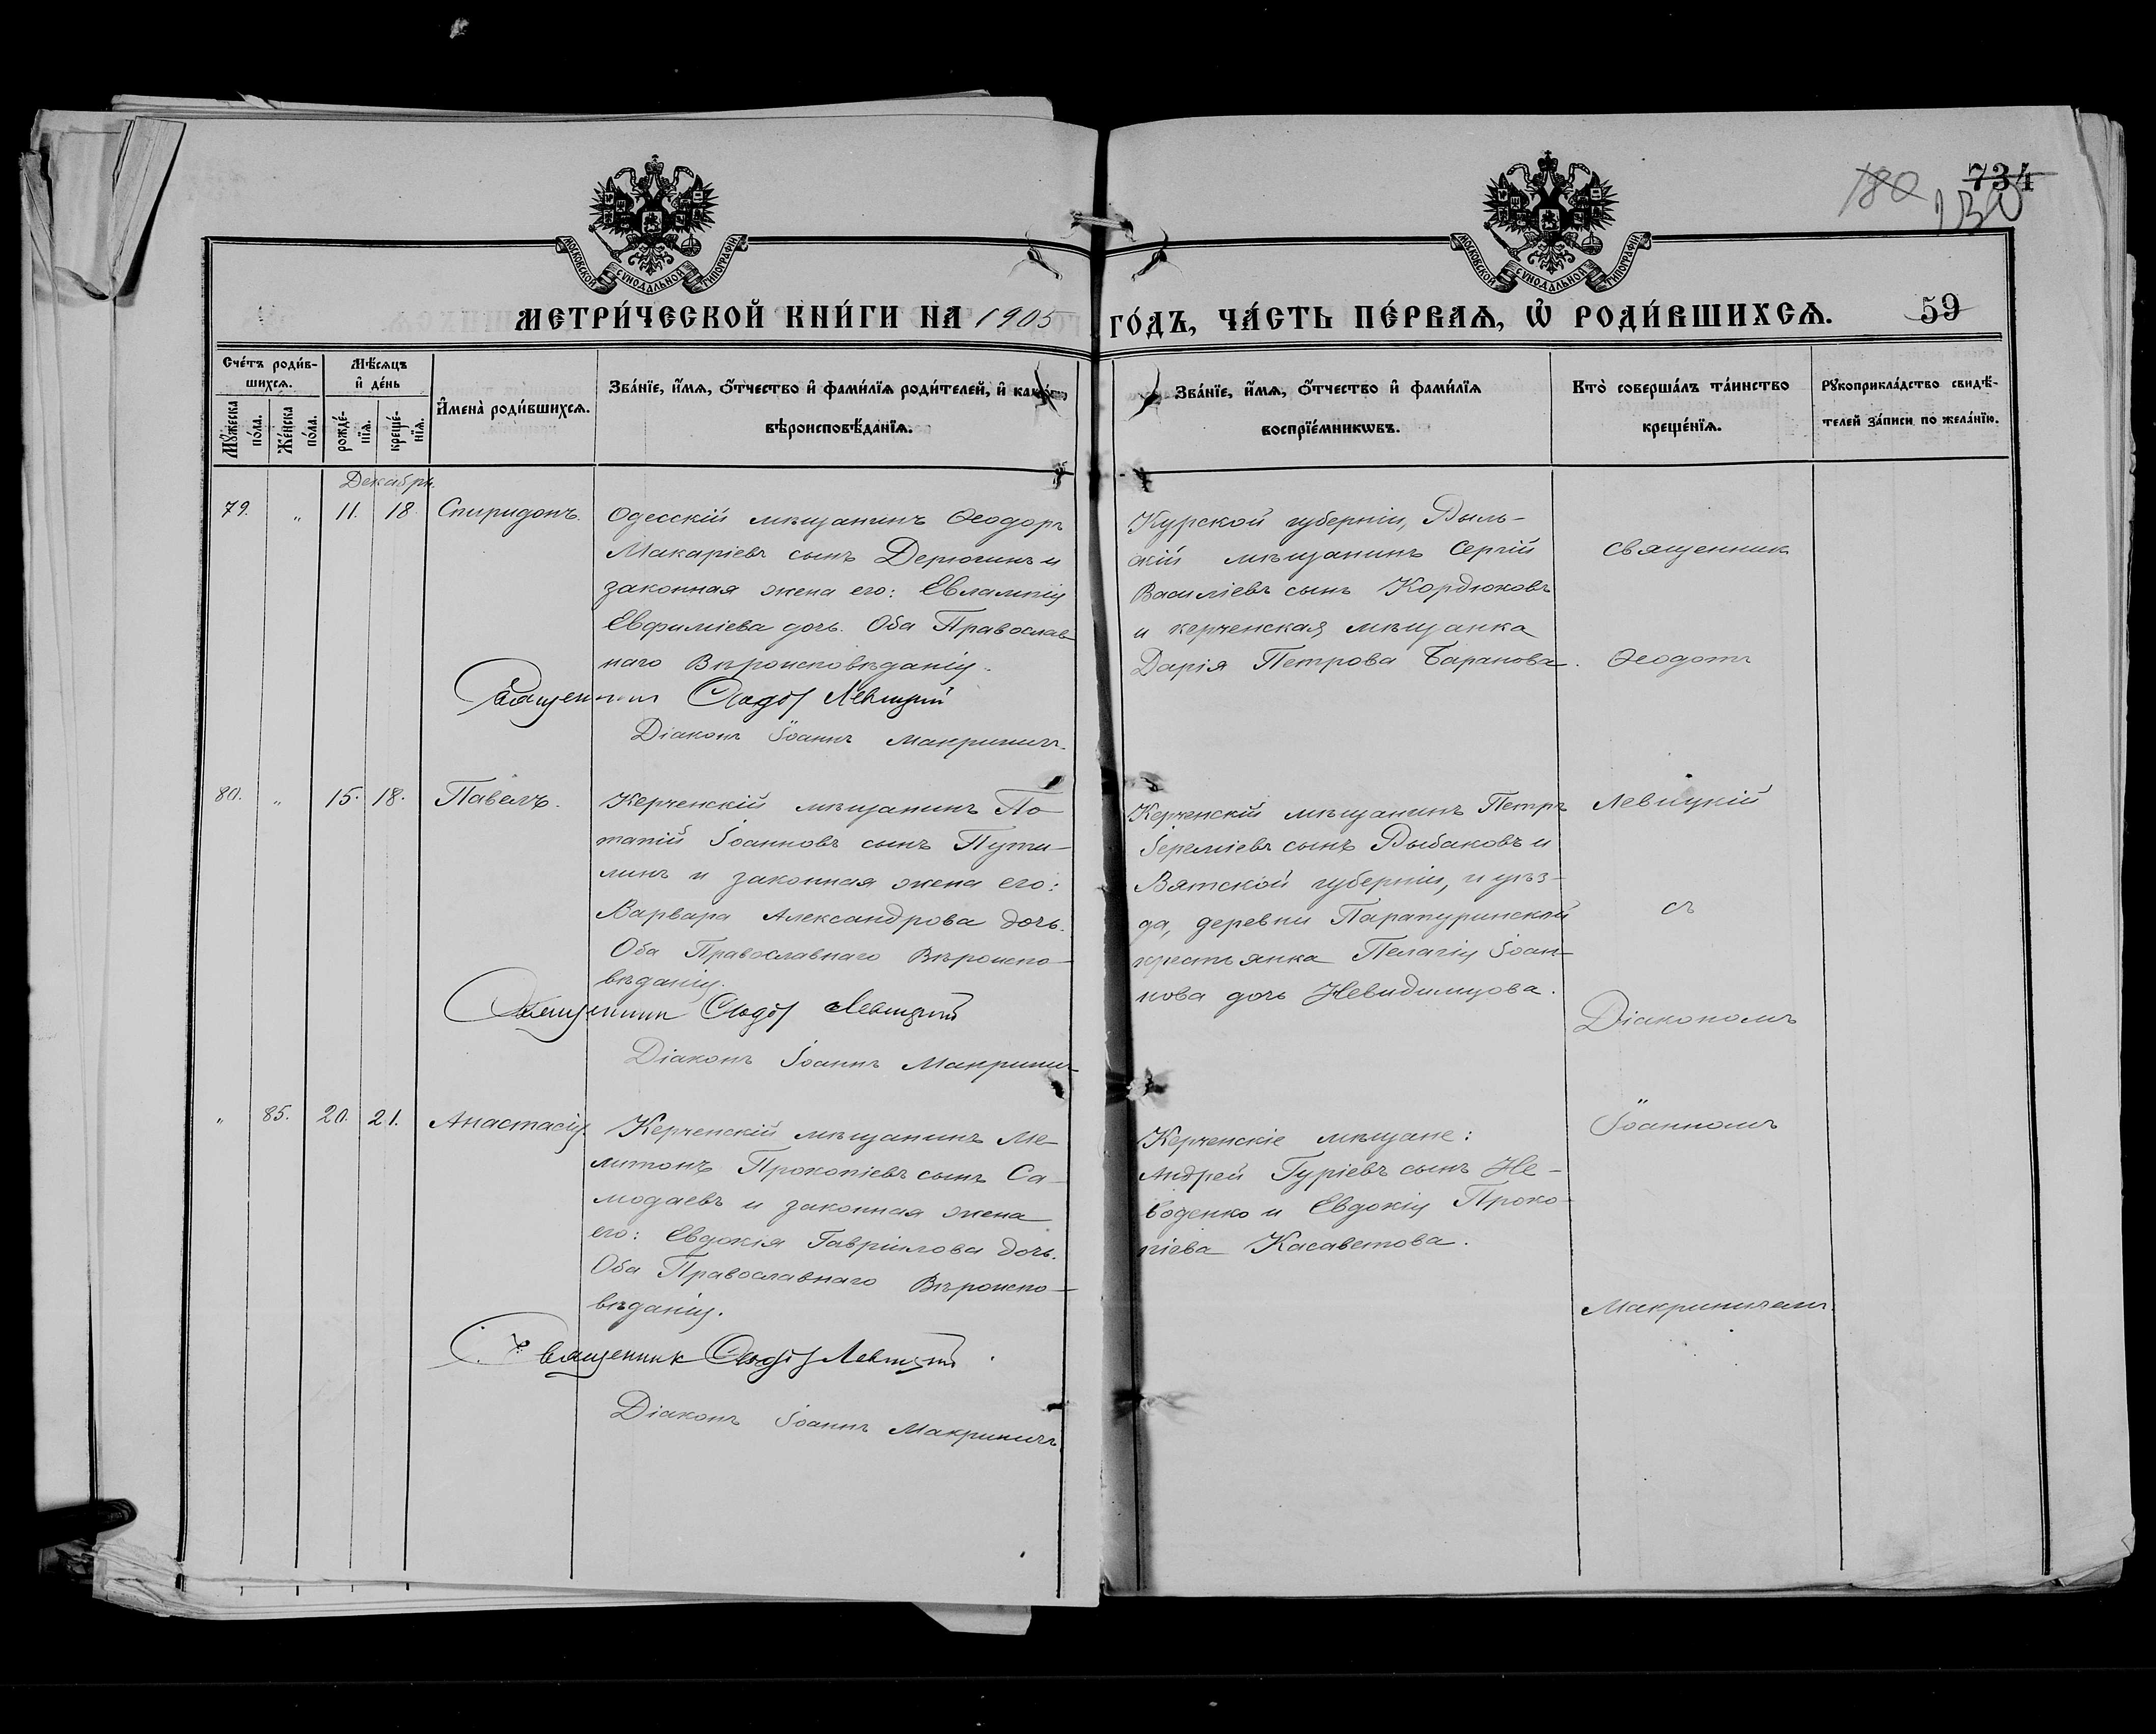 180
734
130
МОСКОВСКОЙ СѴНОДАЛЬНОЙ ТИПОГРАФІИ
МОСКОВСКОЙ СѴНОДАЛЬНОЙ ТИПОГРАФІИ
МЕТРИ́ЧЕСКОЙ КНИ́ГИ НА 1905 ГО́ДЪ, ЧА́СТЬ ПЕ́РВАѦ, Ѡ҆ РОДИ́ВШИХСѦ.
59
Сче́тъ роди́в-
шихсѧ.
Мꙋ́жеска по́ла.
Же́нска по́ла.
Мѣ́сѧцъ
и҆ де́нь
рожде́-
нїѧ.
креще́-
нїѧ.
И҆мена̀ роди́вшихсѧ.
Зва́нїе, и҆́мѧ, ѻ҆́тчество и҆ фами́лїѧ роди́телей, и҆
вѣроисповѣ́данїѧ.
Зва́нїе, и҆́мѧ, ѻ҆́тчество и҆ фами́лїѧ
воспрїе́мникѡвъ.
Кто̀ соверша́лъ та́инство
креще́нїѧ.
Рꙋкоприкла́дство свидѣ́-
телей за́писи по жела́нїю.
Декабрь.
79. „ 11. 18. Спиридонъ.
Одесскій мѣщанинъ Ѳеодоръ
Макаріевъ сынъ Дерюгинъ и
законная жена его: Евлампія
Евфиміева дочь. Оба Православ
наго Вѣроисповѣданія.
Священникъ Ѳеодотъ Левицкій
Діаконъ Іоаннъ Макриничъ.
Курской губерніи, Рыль-
скій мѣщанинъ Сергій
Василіевъ сынъ Кордюковъ
и керченская мѣщанка
Дарія Петрова Баранова.
Священник
Ѳеодотъ
80. „ 15. 18. Павелъ.
Керченскій мѣщанинъ По
тапій Іоанновъ сынъ Пути-
линъ и законная жена его:
Варвара Александрова дочь.
Оба Православнаго Вѣроиспо-
вѣданія.
Священникъ Ѳеодотъ Левицкій
Діаконъ Іоаннъ Макриничъ
Керченскій мѣщанинъ Петръ
Іереміевъ сынъ Рыбаковъ и
Вятской губерніи, и уѣз-
да, деревни
крестьянка Пелагія Іоан-
нова дочь Невидимцова.
Левицкій
съ
Діакономъ
„ 85. 20. 21. Анастасія.
Керченскій мѣщанинъ Ме-
литонъ Прокопіевъ сынъ Са-
модаевъ и законная жена
его: Евдокія Гавріилова дочь.
Оба Православнаго Вѣроиспо-
вѣданія.
Священник Ѳеодотъ Левицкій.
Діаконъ Іоаннъ Макриничъ
Керченскіе мѣщане:
Андрей Гуріевъ сынъ Не-
воденко и Евдокія Проко-
піева Касаветова.
Іоанномъ
Макриничемъ.